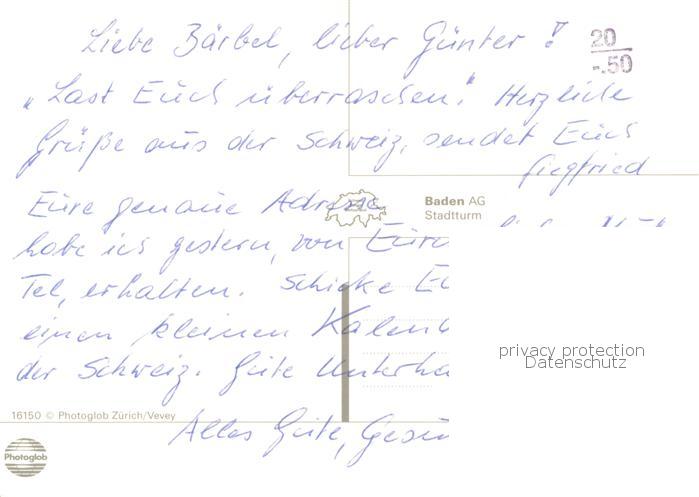 Liebe Bärbel, lieber Günter!
20
-.50
„Last Euch überraschen." Herzliche
Grüße aus der Schweiz, sendet Euch
Siegfried
Baden AG
Stadtturm
Eure genaue Adresse
habe ich gestern, von Eure
Tel, erhalten. Schicke
einen kleinen
der Schweiz. Gute
privacy protection
Datenschutz
16150 © Photoglob Zürich/Vevey
Alles Gute,
Photoglob